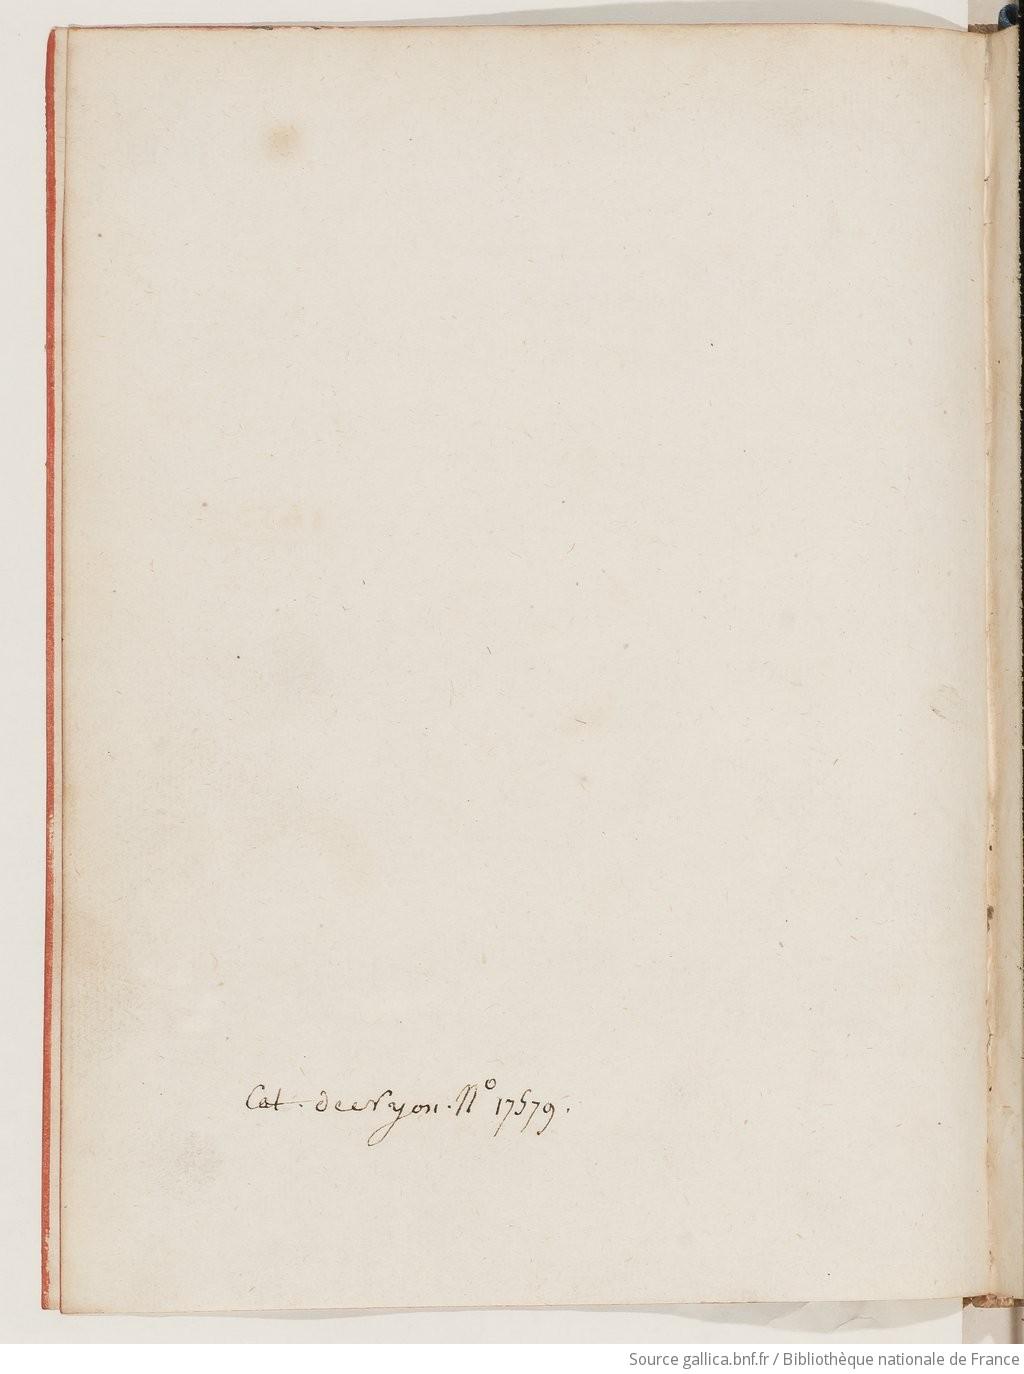 Cat. de Nyon. Nº 17579.
Source gallica.bnf.fr / Bibliothèque nationale de France